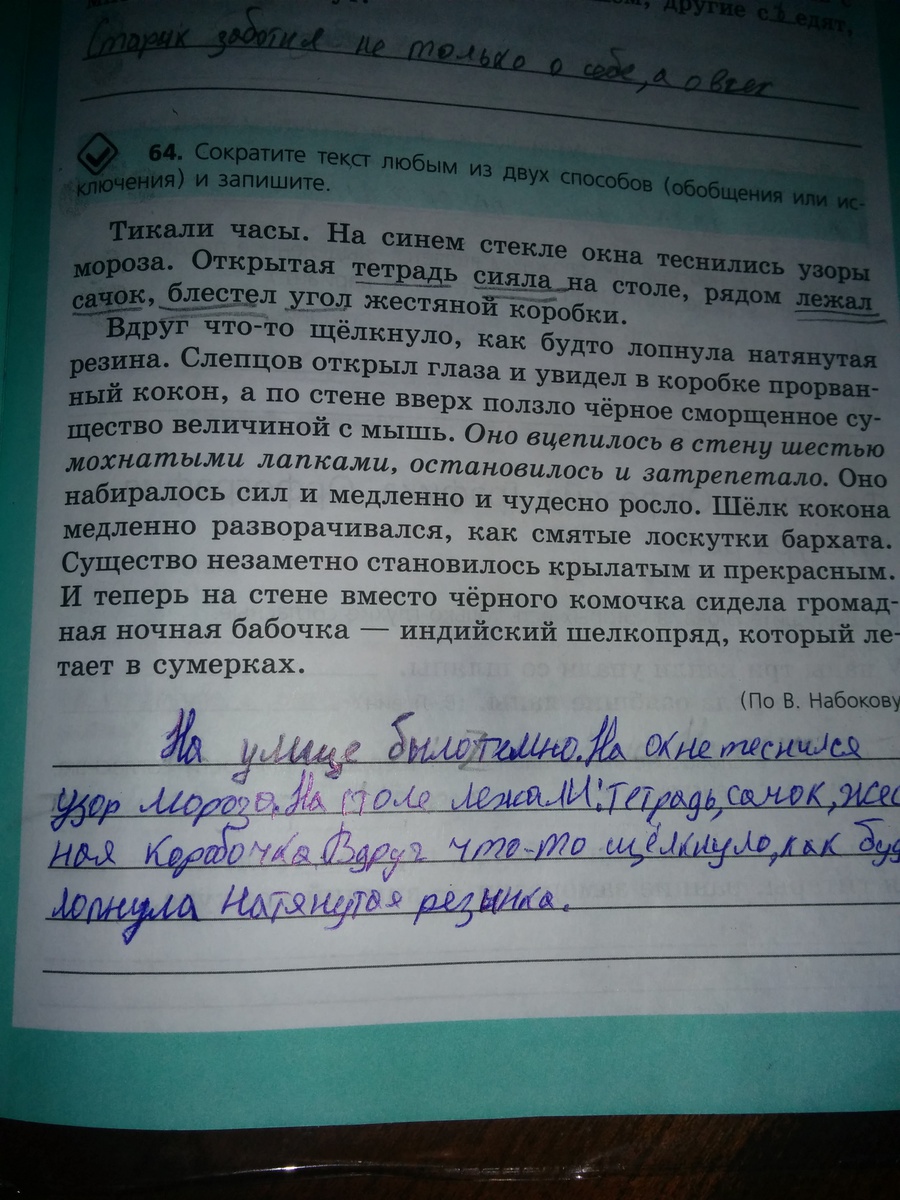 другие съедят,
Старик заботил не только о себе, а о всех
64. Сократите текст любым из двух способов (обобщения или ис-
ключения) и запишите.
Тикали часы. На синем стекле окна теснились узоры
мороза. Открытая тетрадь сияла на столе, рядом лежал
сачок, блестел угол жестяной коробки.
Вдруг что-то щёлкнуло, как будто лопнула натянутая
резина. Слепцов открыл глаза и увидел в коробке прорван-
ный кокон, а по стене вверх ползло чёрное сморщенное су-
щество величиной с мышь. Оно вцепилось в стену шестью
мохнатыми лапками, остановилось и затрепетало. Оно
набиралось сил и медленно и чудесно росло. Шёлк кокона
медленно разворачивался, как смятые лоскутки бархата.
Существо незаметно становилось крылатым и прекрасным.
И теперь на стене вместо чёрного комочка сидела громад-
ная ночная бабочка — индийский шелкопряд, который ле-
тает в сумерках.
(По В. Набокову
На улице было темно. На окне теснился
узор мороза. На столе лежали: тетрадь, сачок, жес
ная коробочка. Вдруг что-то щёлкнуло, как буд
лопнула натянутая резинка.